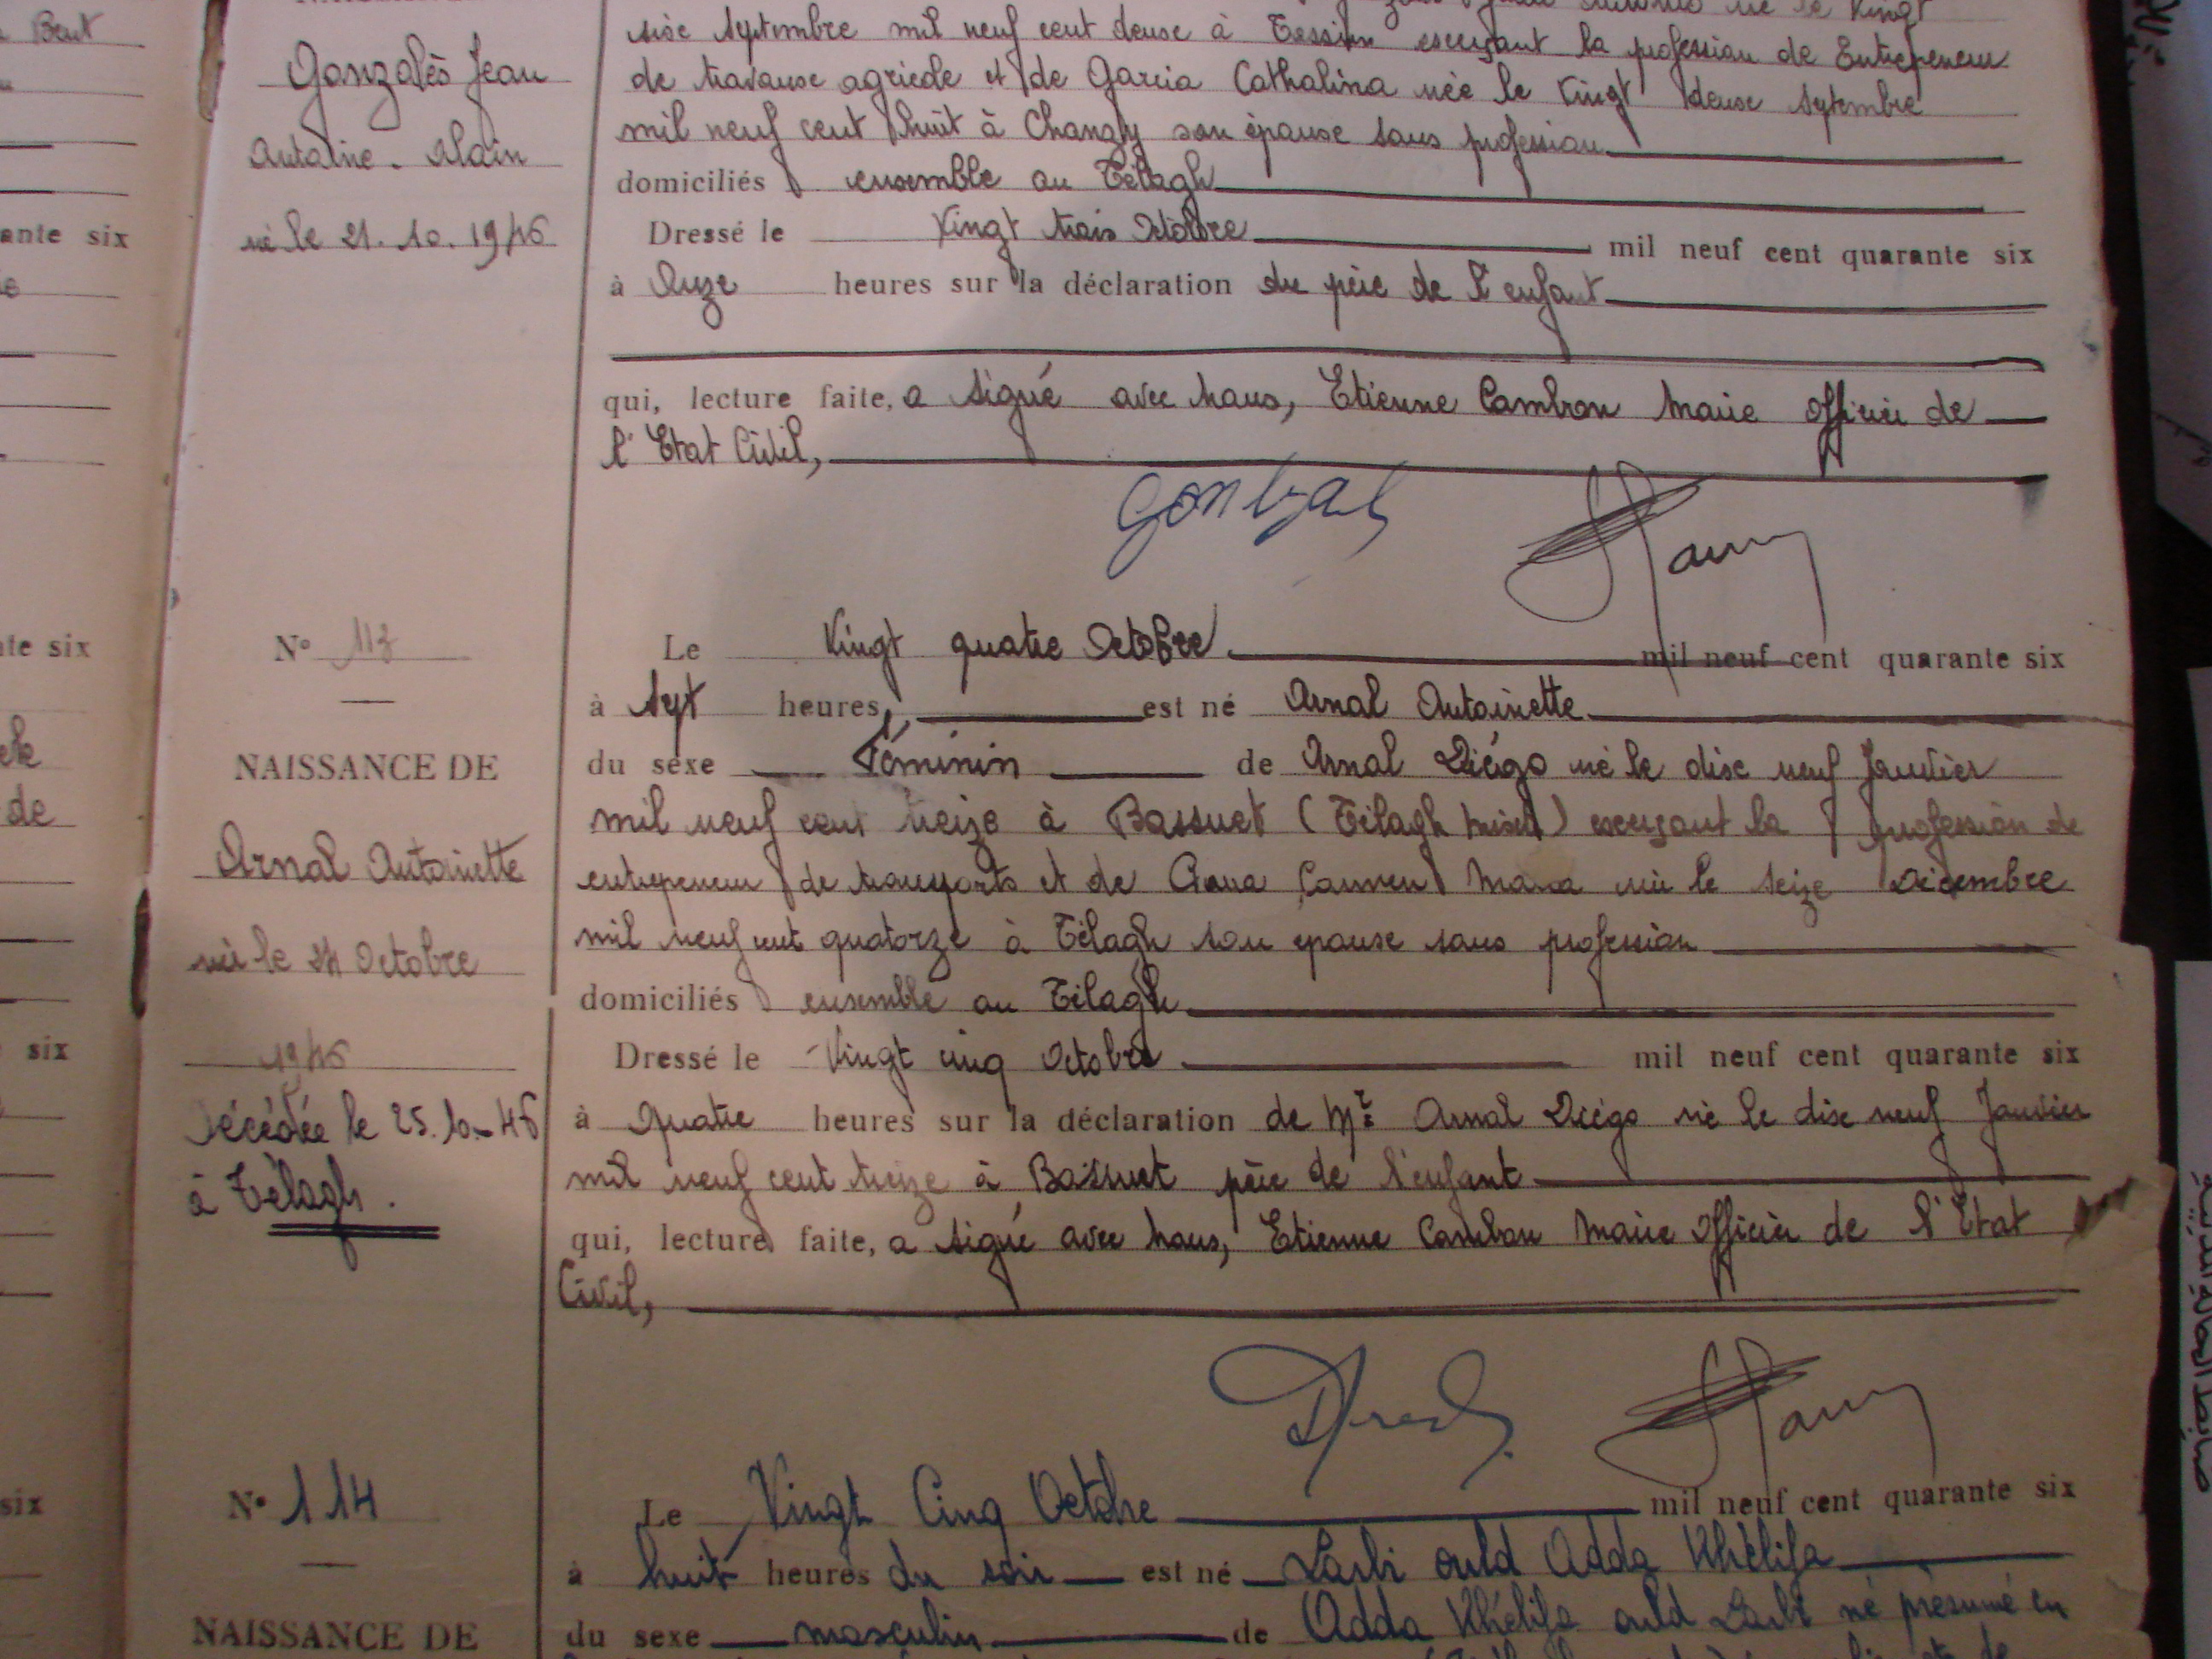 Gonzalès Jean
Antoine. Alain
né le 21. 10. 1946
Septembre mil neuf cent deux à Tessier exerçant la profession de Entrepreneur
de travaux agricole et de Garcia Cathalina née le vingt deux Septembre
mil neuf cent huit à Changy son épouse sans profession
domiciliés ensemble au Télagh
Dressé le Vingt trois Octobre mil neuf cent quarante six
à Onze heures sur la déclaration du père de l'enfant
qui, lecture faite, a signé avec nous, Etienne Cambon Maire Officier de
l'Etat Civil,
N° 113
NAISSANCE DE
Arnal Antoinette
née le 24 Octobre
1946
Décédée le 25.10-46
à Télagh.
Le Vingt quatre Octobre mil neuf cent quarante six
à Sept heures, est né Arnal Antoinette
du sexe Féminin de Arnal Diégo né le dix neuf Janvier
mil neuf cent treize à Bossuet (Télagh mixte) exerçant la profession de
entrepreneur de transports et de Carmen Maria née le seize Décembre
mil neuf cent quatorze à Télagh son épouse sans profession
domiciliés ensemble au Télagh
Dressé le Vingt cinq Octobre mil neuf cent quarante six
à Quatre heures sur la déclaration de Mr Arnal Diégo né le dix neuf Janvier
mil neuf cent treize à Bossuet père de l'enfant
qui, lecture faite, a signé avec nous, Etienne Cambon Maire Officier de l'Etat
Civil,
N° 114
NAISSANCE DE
Le Vingt Cinq Octobre mil neuf cent quarante six
à huit heures du soir est né Larbi ould Adda Khélifa
du sexe masculin de Adda Khélifa ould Larbi né présumé en